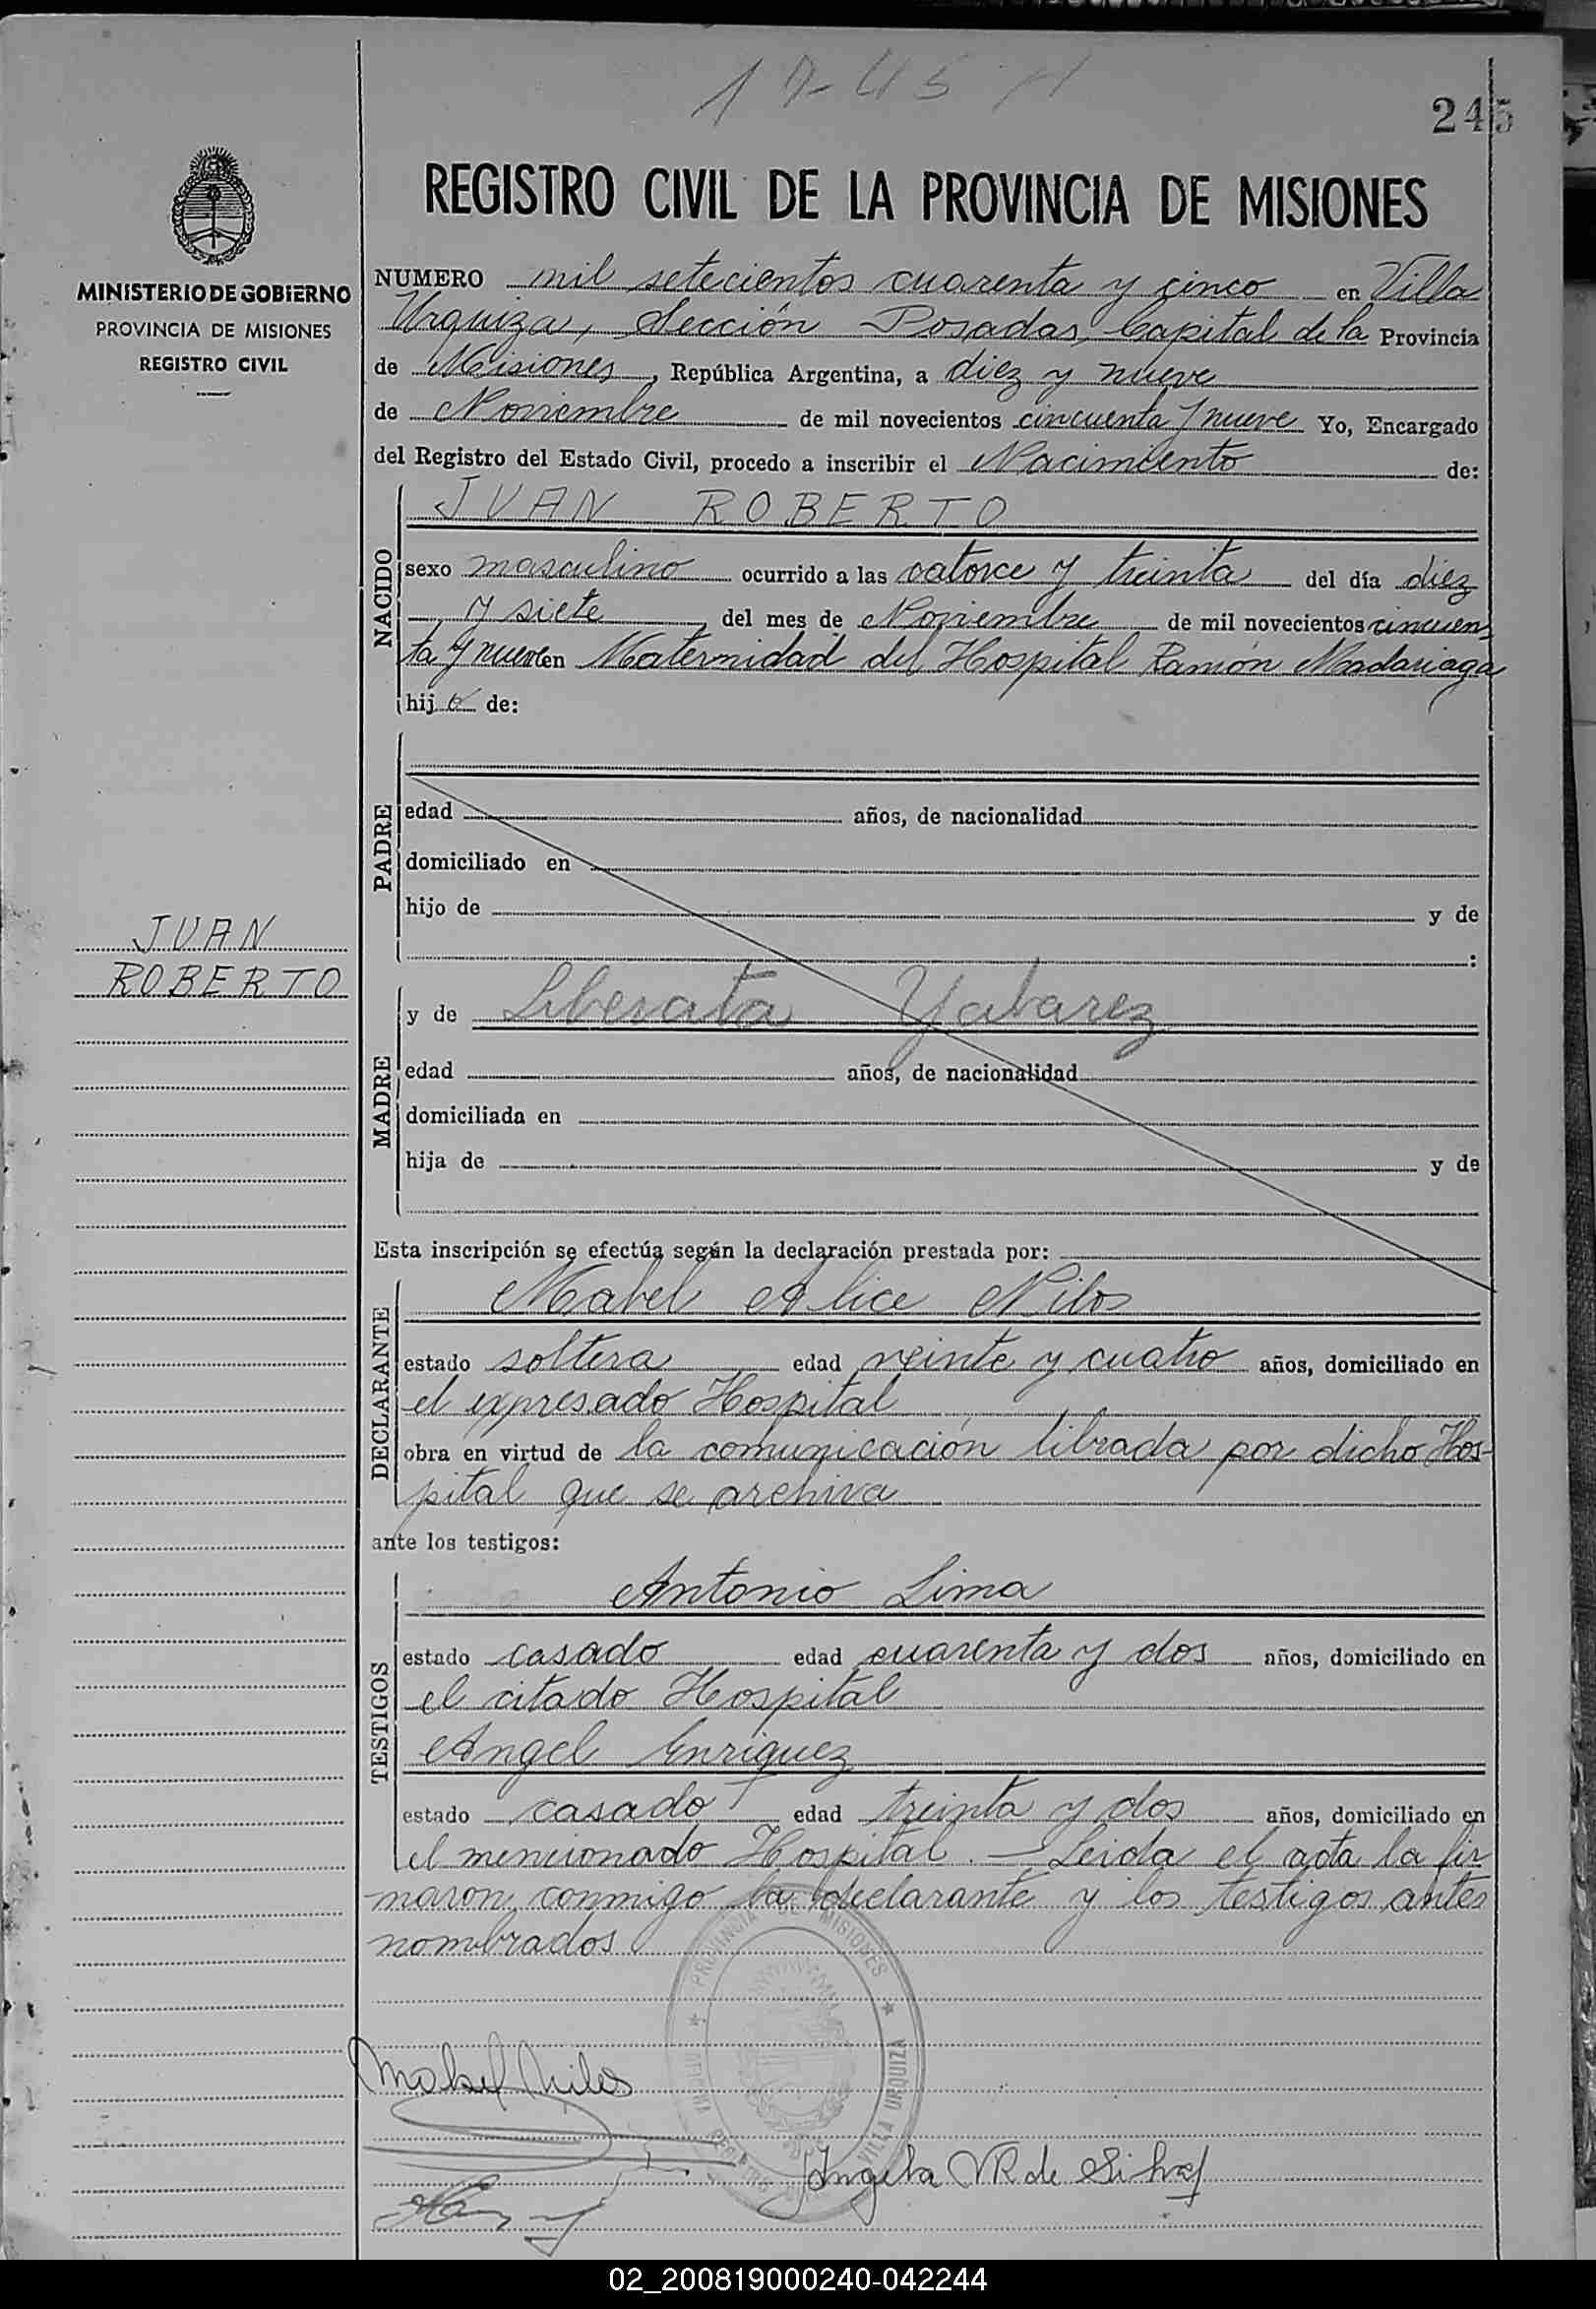 1745
245
MINISTERIO DE GOBIERNO
PROVINCIA DE MISIONES
REGISTRO CIVIL
REGISTRO CIVIL DE LA PROVINCIA DE MISIONES
NUMERO mil setecientos cuarenta y cinco en Villa
Urquiza, Sección Posadas, Capital de la Provincia
de Misiones, República Argentina, a diez y nueve
de Noviembre de mil novecientos cincuenta y nueve Yo, Encargado
del Registro del Estado Civil, procedo a inscribir el Nacimiento de:
NACIDO
JUAN ROBERTO
sexo masculino ocurrido a las catorce y treinta del día diez
y siete del mes de Noviembre de mil novecientos cincuen
ta y nueve en Maternidad del Hospital Ramón Madariaga
hijo de:
PADRE
edad años, de nacionalidad
domiciliado en
hijo de y de
:
JUAN
ROBERTO
MADRE
y de Liberata Yabarez
edad años, de nacionalidad
domiciliada en
hija de y de
Esta inscripción se efectúa según la declaración prestada por:
DECLARANTE
Mabel Alice Nilos
estado soltera edad veinte y cuatro años, domiciliado en
el expresado Hospital
obra en virtud de la comunicación librada por dicho Hos-
pital que se archiva
ante los testigos:
TESTIGOS
Antonio Lima
estado casado edad cuarenta y dos años, domiciliado en
el citado Hospital
Angel Enriquez
estado casado edad treinta y dos años, domiciliado en
el mencionado Hospital. — Leida el acta la fir
maron conmigo la declarante y los testigos antes
nombrados
PROVINCIA DE MISIONES
VILLA URQUIZA
Mabel Nilos
Angela VR de Silva
02_200819000240-042244